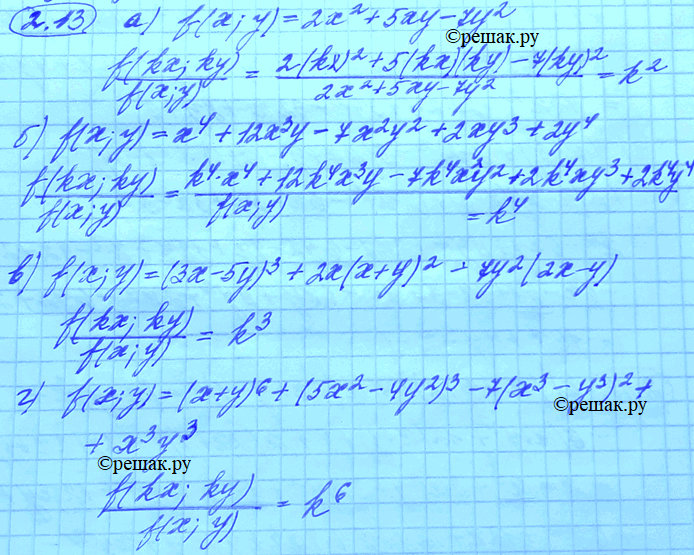 2.13 а) f(x; y) = 2x² + 5xy - 7y²
©решак.ру
f(kx; ky)/f(x; y) = (2(kx)² + 5(kx)(ky) - 7(ky)²)/(2x² + 5xy - 7y²) = k²
б) f(x; y) = x⁴ + 12x³y - 7x²y² + 2xy³ + 2y⁴
f(kx; ky)/f(x; y) = (k⁴·x⁴ + 12k⁴x³y - 7k⁴x²y² + 2k⁴xy³ + 2k⁴y⁴)/f(x; y)
= k⁴
©решак.ру
в) f(x; y) = (3x-5y)³ + 2x(x+y)² - 7y²(2x-y)
f(kx; ky)/f(x; y) = k³
г) f(x; y) = (x+y)⁶ + (5x² - 4y²)³ - 7(x³ - y³)² +
©решак.ру
+ x³y³
©решак.ру
f(kx; ky)/f(x; y) = k⁶